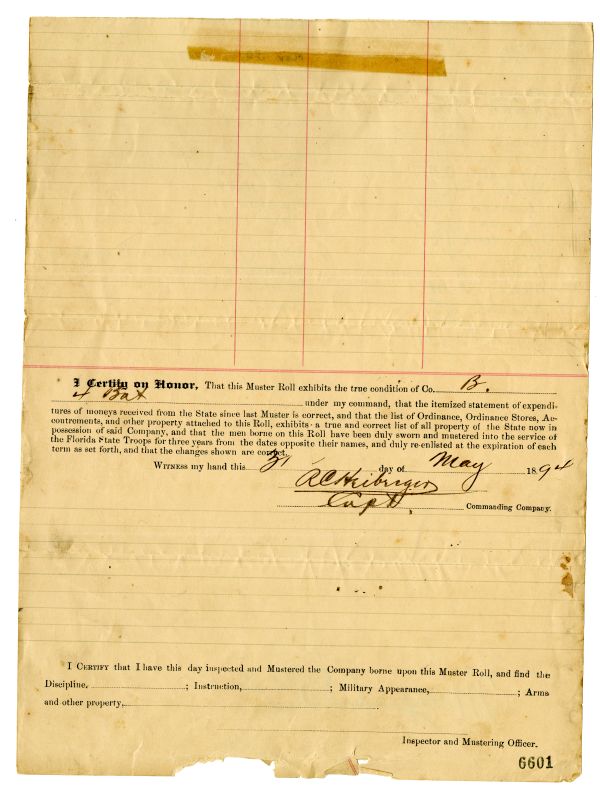 I Certify on Honor, That this Muster Roll exhibits the true condition of Co. B.
4 Bat under my command, that the itemized statement of expendi-
tures of moneys received from the State since last Muster is correct, and that the list of Ordinance, Ordinance Stores, Ac-
contrements, and other property attached to this Roll, exhibits a true and correct list of all property of the State now in
possession of said Company, and that the men borne on this Roll have been duly sworn and mustered into the service of
the Florida State Troops for three years from the dates opposite their names, and duly re-enlisted at the expiration of each
term as set forth, and that the changes shown are correct.
Witness my hand this 31 day of May 1894
R C Heiberger
Capt, Commanding Company.
I Certify that I have this day inspected and Mustered the Company borne upon this Muster Roll, and find the
Discipline, ; Instruction, ; Military Appearance, ; Arms
and other property,
Inspector and Mustering Officer.
6601